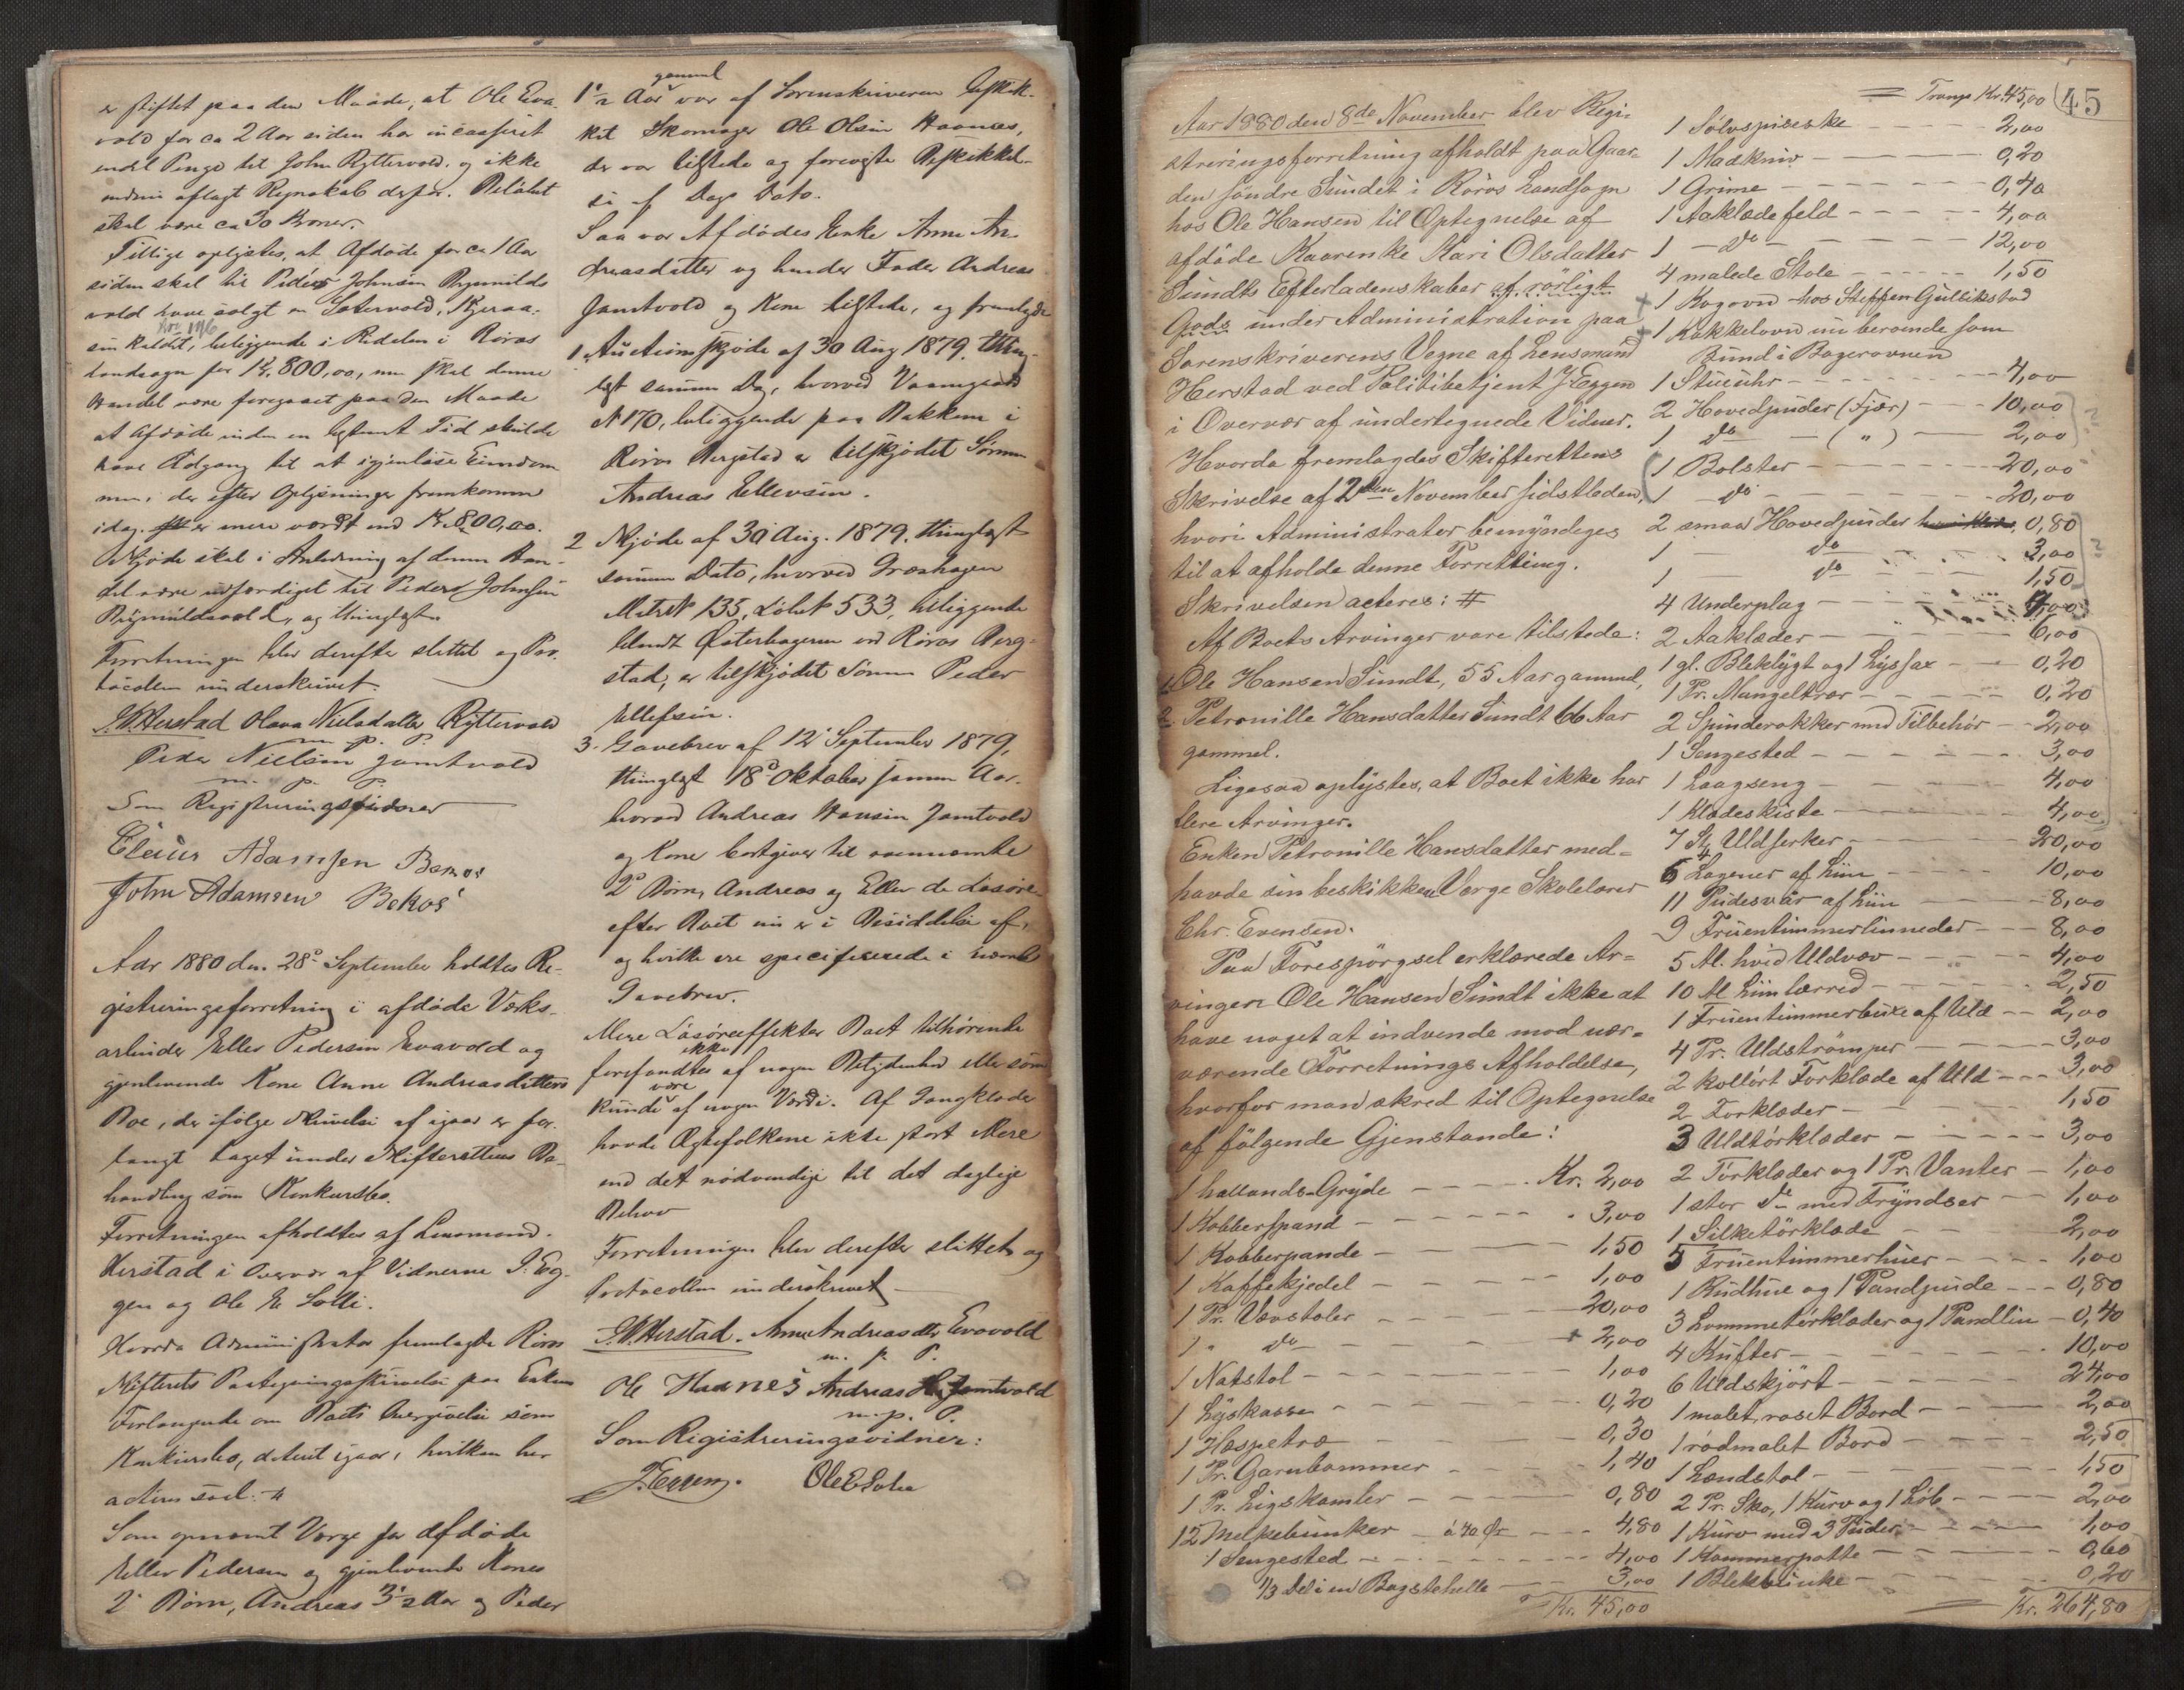 er stiftet paa den Maade, at Ole Eva-
vold for ca 2 Aar siden har incasseret
endel Penge til John Ryttervold og ikke
endnu aflagt Regnskab derfor. Beløbet
skal være ca 30 Kroner.
Tillige oplystes, at Afdøde for ca 1 Aar
siden skal til Peder Johnsen Brynilds
vold have solgt en Sætervold, Kjeraa-
sen kaldet, beliggende i Ridalen i Røros
Landsogn for Kr. 800,00, men skal denne
Handel være foregaaet paa den Maade
at Afdøde inden en bestemt Tid skulde
have Adgang til at igjenløse Eiendom
men, der efter Oplysninger fremkomne
idag er mere værdt end Kr. 800,00.
Skjøde skal i Anledning af denne Han-
del være udfærdiget til Peder Johnsen
Brynildsvold, og thinglæst.
Forretningen blev derefter sluttet og Pro-
tocollen underskrevet.
J. W. Herstad Olava Nielsdatter Ryttervold
m. p. P.
Peder Nielsen Jamtvold
m. p. P.
Som Registreringsvidner
Eleius Adamsen Bekos
John Adamsen Bekos
Aar 1880 den 28de September holdtes Re-
gistreringsforretning i afdøde Værks-
arbeider Ellev Pedersen Evavold og
gjenlevende Kone Anne Andreasdatters
Boe, der ifølge Skrivelse af igaar er for-
langt taget under Skifterettens Be-
handling som Konkursbo.
Forretningen afholdtes af Lensmand
Herstad i Overvær af Vidnerne J. Eg-
gen og Ole E Solli.
Hvorda Administrator fremlagde Røros
Skifterets Paategningsskrivelse paa Enkens
Forlangende om Boets Overgivelse som
Konkursbo, dateret igaar, hvilken her
acteres saal. #
Som opnævnt Værge for Afdøde
Ellev Pedersen og gjenlevende Kones
2de Børn, Andreas 3 1/2 Aar og Peder
1 1/2 Aar gammel var af Sorenskriveren beskik-
ket Skomager Ole Olsen Haanes,
der var tilstede og foreviste Beskikkel-
se af Dags Dato.
Saa var Afdødes Enke Anne An-
dreasdatter og hendes Fader Andreas
Jamtvold og Kone tilstede, og fremlagde
1 Auctionsskjøde af 30 Aug 1879. thing-
læst samme Dag, hvorved Vaaningen
N 170, beliggende paa Bakken i
Røros Bergstad er tilskjødet Sønnen
Andreas Ellevsen.
2 Skjøde af 30 Aug. 1879. thinglæst
samme Dato, hvorved Græshagen
Matr N 135, Løbe N 533, beliggende
blandt Østerhagerne ved Røros Berg-
stad, er tilskjødet Sønnen Peder
Ellefsen.
3. Gavebrev af 12te September 1879,
thinglæst 18de Oktober samme Aar.
hvorved Andreas Hansen Jamtvold
og Kone bortgiver til ovennævnte
2de Børn, Andreas og Ellev de Løsøre
efter Boet nu er i Besiddelse af,
og hvilke ere specificerede i nævnte
Gavebrev.
Mere Løsøreeffekter Boet tilhørende
forefandtes ikke af nogen Betydenhed eller som
kunde være af nogen Værdi. Af Gangklæder
havde Ægtefolkene ikke stort Mere
end det nødvendige til det daglige
Behov
Forretningen blev derefter sluttet og
Protocollen underskrevet
J. W. Herstad. Anne Andreasdtr Evavold
m. p. P.
Ole Haanes Andreas H. Jamtvold
m. p. P.
Som Registreringsvidner:
J. Eggen. Ole E Solli
45
Aar 1880 den 8de November blev Regi-
streringsforretning afholdt paa Gaar-
den søndre Sundet i Røros Landsogn
hos Ole Hansen til Optegnelse af
afdøde Kaarenke Kari Olsdatter
Sundts Efterladenskaber af rørligt
Gods under Administration paa
Sorenskriverens Vegne af Lensmand
Herstad ved Politibetjent J Eggen
i Overvær af undertegnede Vidner.
Hvorda fremlagdes Skifterettens
Skrivelse af 2den November sidstleden,
hvori Administrator bemyndiges
til at afholde denne Forretting.
Skrivelsen acteres: #
Af Boets Arvinger vare tilstede:
1. Ole Hansen Sundt, 55 Aar gammel,
2. Petronille Hansdatter Sundt 66 Aar
gammel.
Ligesaa oplystes, at Boet ikke har
flere Arvinger.
Enken Petronille Hansdatter med-
havde sin beskikkede Værge Skolelærer
Chr. Evensen.
Paa Forespørgsel erklærede Ar-
vingen Ole Hansen Sundt ikke at
have noget at indvende mod nær-
værende Forretnings Afholdelse,
hvorfor man skred til Optegnelse
af følgende Gjenstande:
1 hallands Gryde - - - Kr. 2,00
1 Kobberspand - - - 3,00
1 Kobberpande - - - 1,50
1 Kaffekjedel - - - 1,00
1 Pr. Vævstoler - - - 20,00
1 " do - - - 2,00
1 Natstol - - - 1,00
1 Lyskasse - - - 0,20
1 Hæspetræ - - - 0,30
1 Pr. Garnbommer - - - 1,40
1 Pr. Ligskamler - - - 0,80
12 Melkebunker - à 40 Ør - - - 4,80
1 Sengested - - - 4,00
1/3 Del i en Bagstehelle - - - 3,00
Kr. 45,00
Transp Kr. 45,00
1 Sølvspiseske - - - 2,00
1 Madkniv - - - 0,20
1 Grime - - - 0,40
1 Aaklædefeld - - - 4,00
1 - do - - - 12,00
4 malede Stole - - - 1,50
+ 1 Kogovn hos Steffen Gullikstad
+ 1 Kakkelovn nu beroende som
Bund i Bagerovnen
1 Stueuhr - - - 4,00
2 Hovedpuder (Fjær) - - - 10,00
1 do - ( " ) - - - 2,00
1 Bolster - - - 20,00
1 - do - - - 20,00
2 smaa Hovedpuder 0,80
1 - do - - - 3,00
1 - do - - - 1,50
4 Underplag - - - 4,00
2 Aaklæder - - - 6,00
1 gl. Bleklygt og 1 Lyssax - - - 0,20
1 Pr. Mangeltrær - - - 0,20
2 Spinderokker med Tilbehør - - - 2,00
1 Sengested - - - 3,00
1 Laagseng - - - 4,00
1 Klædeskiste - - - 4,00
7 St, Uldserker - - - 20,00
Lagener af Liin - - - 10,00
11 Pudesvar af Liin - - - 8,00
9 Fruentimmerlinneder - - - 8,00
5 Al. hvid Uldvæv - - - 4,00
10 Al Liinlærred - - - 2,50
1 Fruentimmerbuxe af Uld - - 2,00
4 Pr. Uldstrømper - - - 3,00
2 kollørt Forklæde af Uld - - - 3,00
2 Forklæder - - - 1,50
3 Uldtørklæder - - - 3,00
2 Tørklæder og 1 Pr. Vanter - 1,00
1 stor do med Fryndser - - 1,00
1 Silketørklæde - - - 2,00
5 Fruentimmerhuer - - - 1,00
1 Rudhue og 1 Pandpude - - - 0,80
3 Lommetørklæder og 1 Pandlin - 0,40
4 Kufter - - - 10,00
6 Uldskjørt - - - 24,00
1 malet, roset Bord - - - 2,00
1 rødmalet Bord - - - 2,50
1 Lændstol - - - 1,50
2 Pr. Sko, 1 Kurv og 1 Løb - - - 2,00
1 Kurv med 3 Puder - - - 1,00
1 Kammerpotte - - - 0,60
1 Blekbunke - - - 0,20
Kr. 264,80